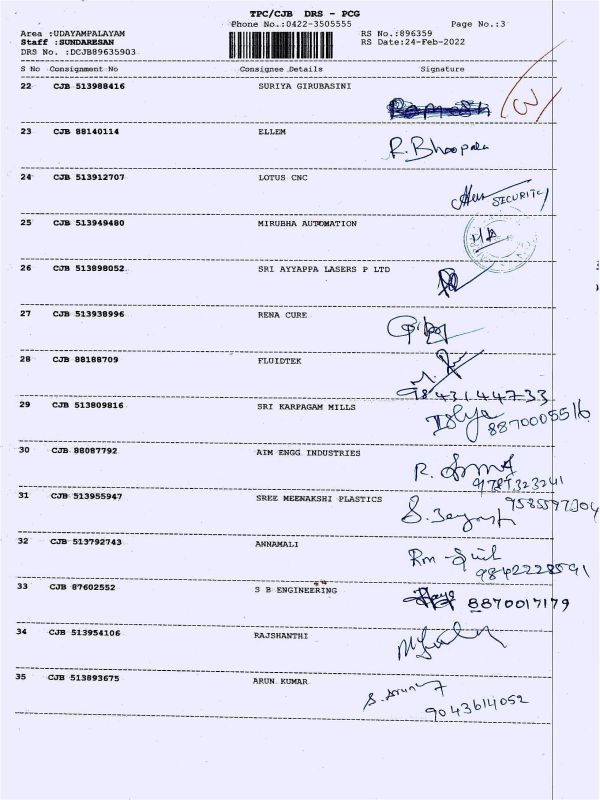 TPC/CJB DRS - PCG
Phone No.:0422-3505555 Page No.:3
Area :UDAYAMPALAYAM RS No.:896359
Staff :SUNDARESAN RS Date:24-Feb-2022
DRS No. :DCJB89635903
S No Consignment No Consignee Details Signature
22 CJB 513988416 SURIYA GIRUBASINI
3
23 CJB 88140114 ELLEM
R. Bhoopala
24 CJB 513912707 LOTUS CNC
SECURITY
25 CJB 513949480 MIRUBHA AUTOMATION
26 CJB 513898052 SRI AYYAPPA LASERS P LTD
27 CJB 513938996 RENA CURE
28 CJB 88188709 FLUIDTEK
9843144733
29 CJB 513809816 SRI KARPAGAM MILLS
8870005516
30 CJB 88087792 AIM ENGG INDUSTRIES
R.
31 CJB 513955947 SREE MEENAKSHI PLASTICS
32 CJB 513792743 ANNAMALI
33 CJB 87602552 S B ENGINEERING
8870017179
34 CJB 513954106 RAJSHANTHI
35 CJB 513893675 ARUN KUMAR
S. Arun
9043614052